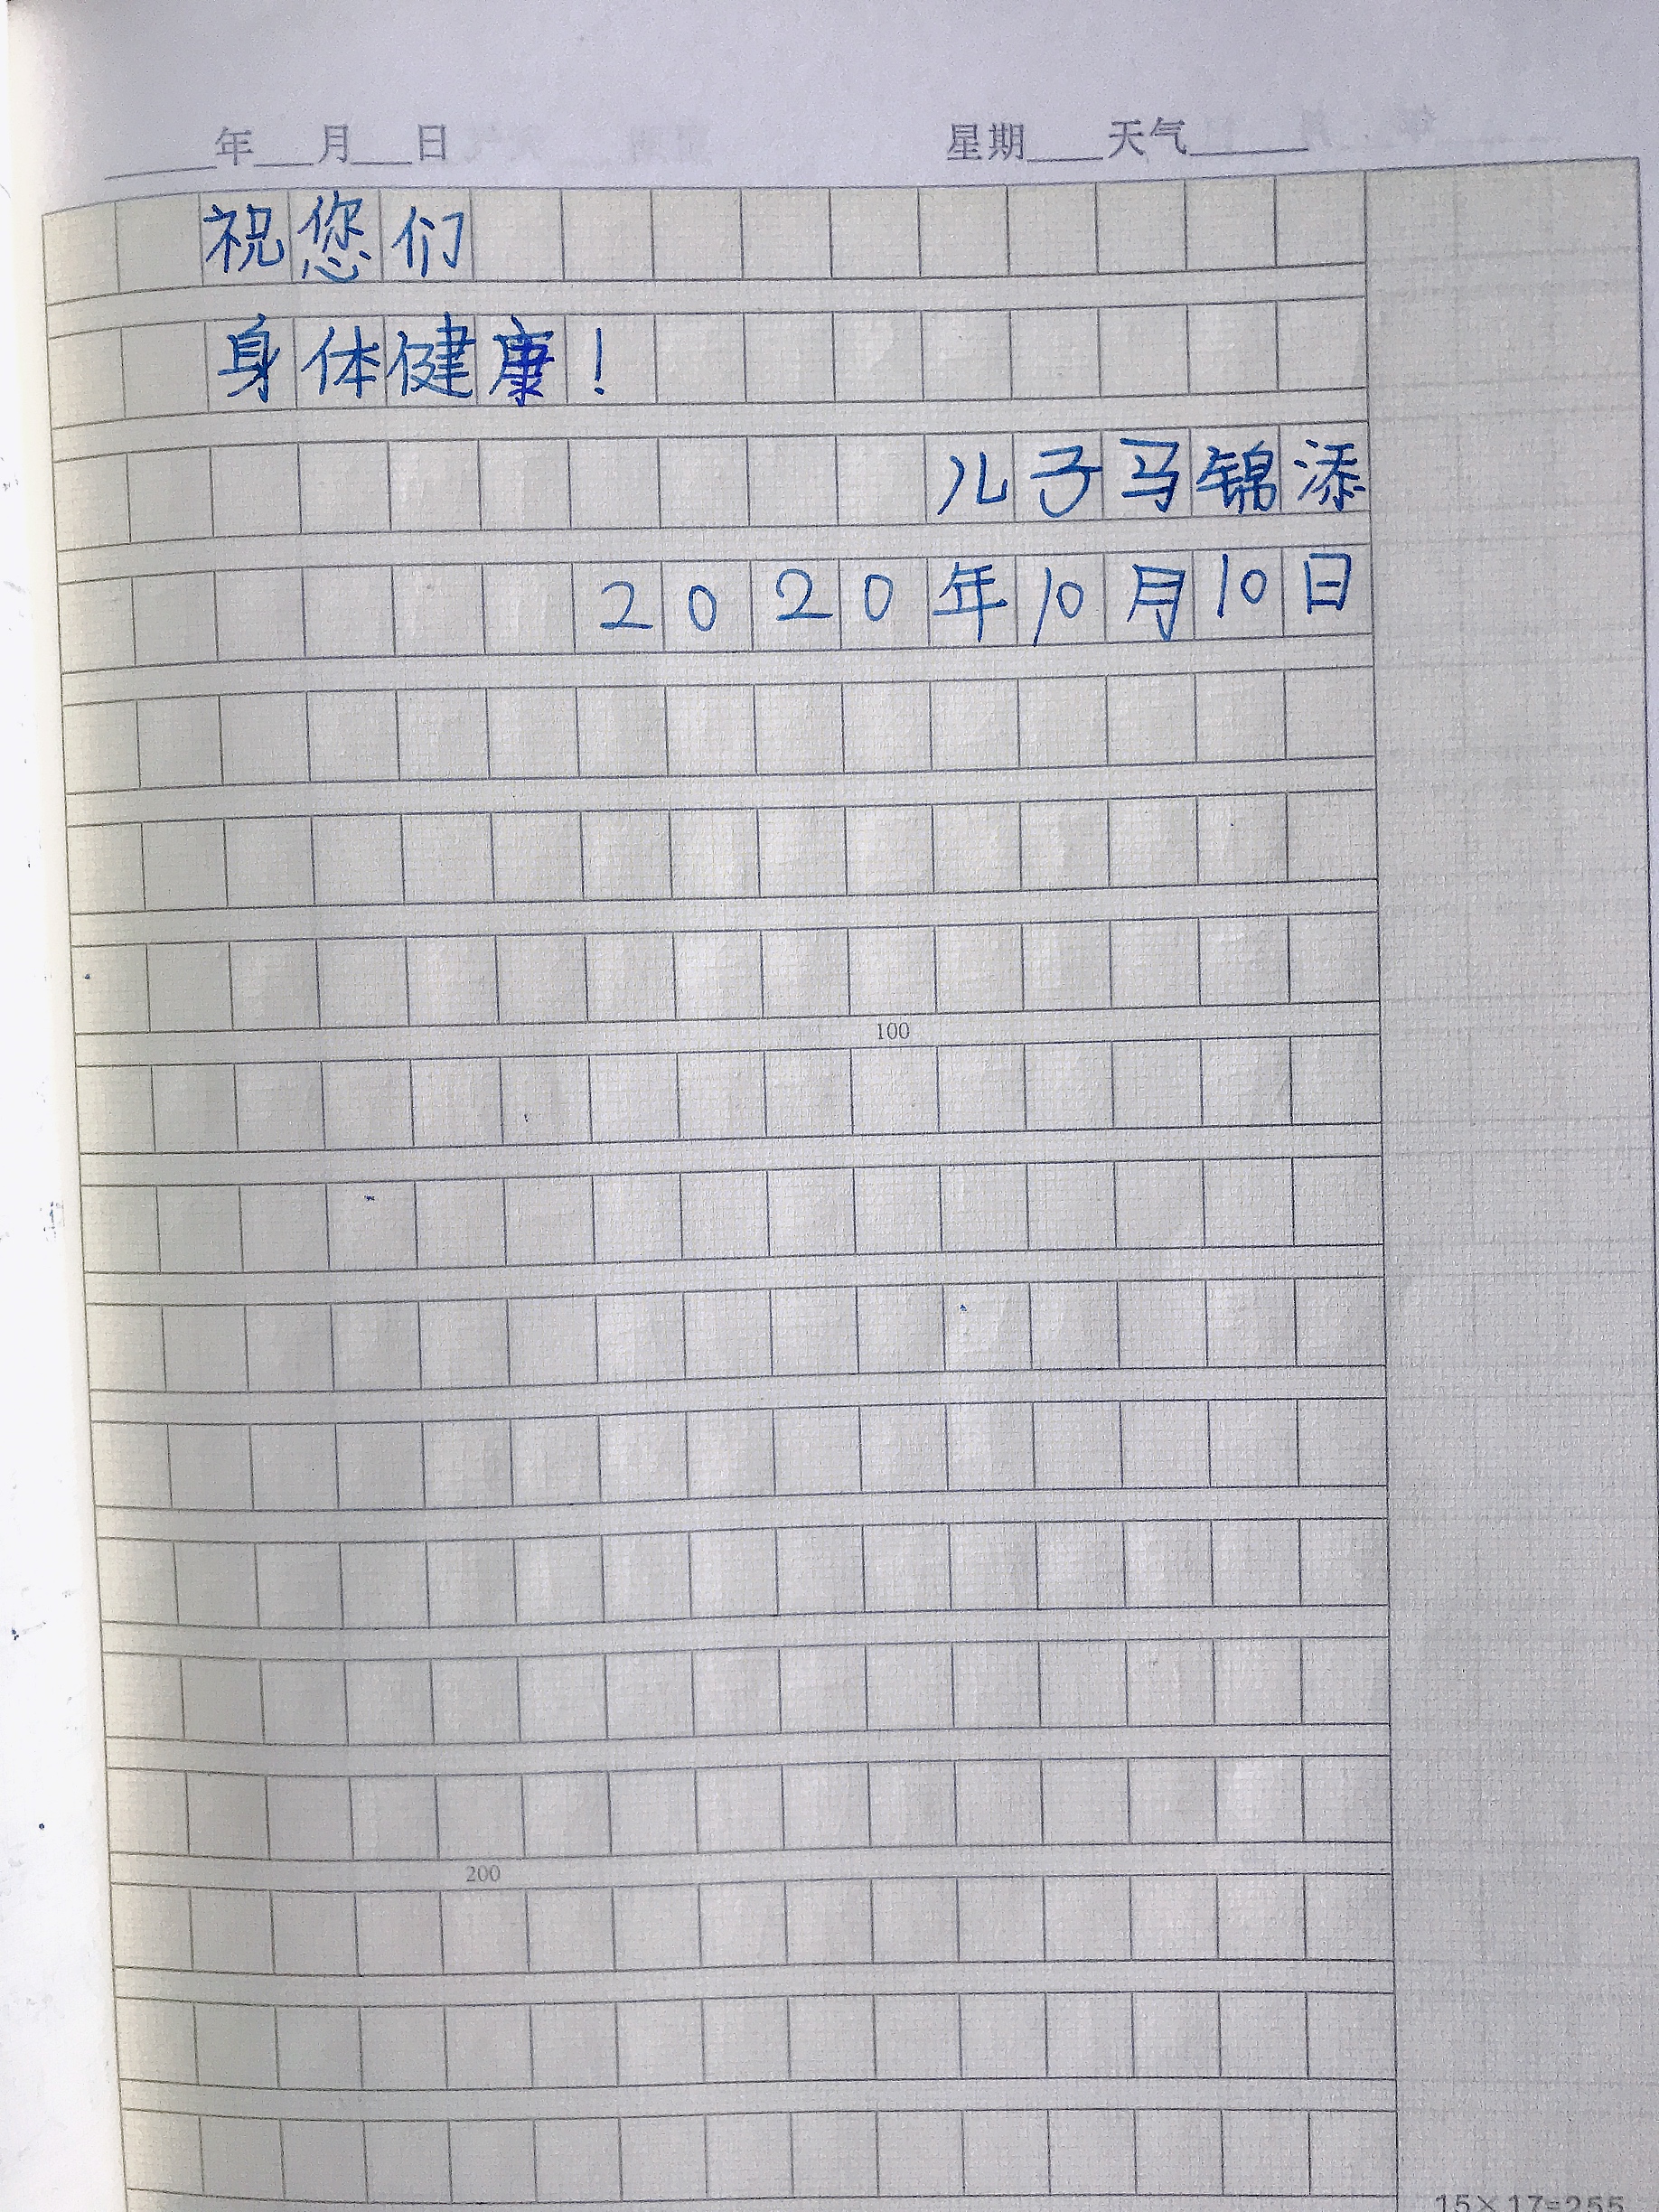 ____年__月__日 星期___天气_____
祝您们
身体健康！
儿子马锦添
2020年10月10日
100
200
15×17=255